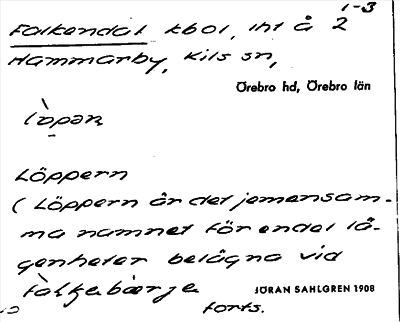 1-3
Falkendal tbol, int å 2
Hammarby, Kils sn,
Örebro hd, Örebro län
Löppern
(Löppern är det jemensam-
ma namnet för endel lä-
genheter belägna vid
JÖRAN SAHLGREN 1908
forts.